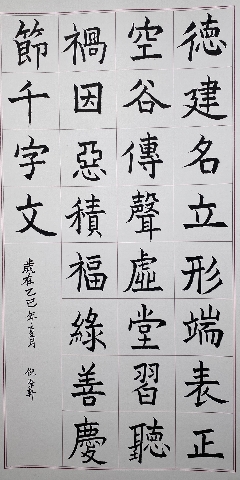 德建名立形端表正
空谷傳聲虛堂習聽
禍因惡積福綠善慶
節千字文
歲在乙巳